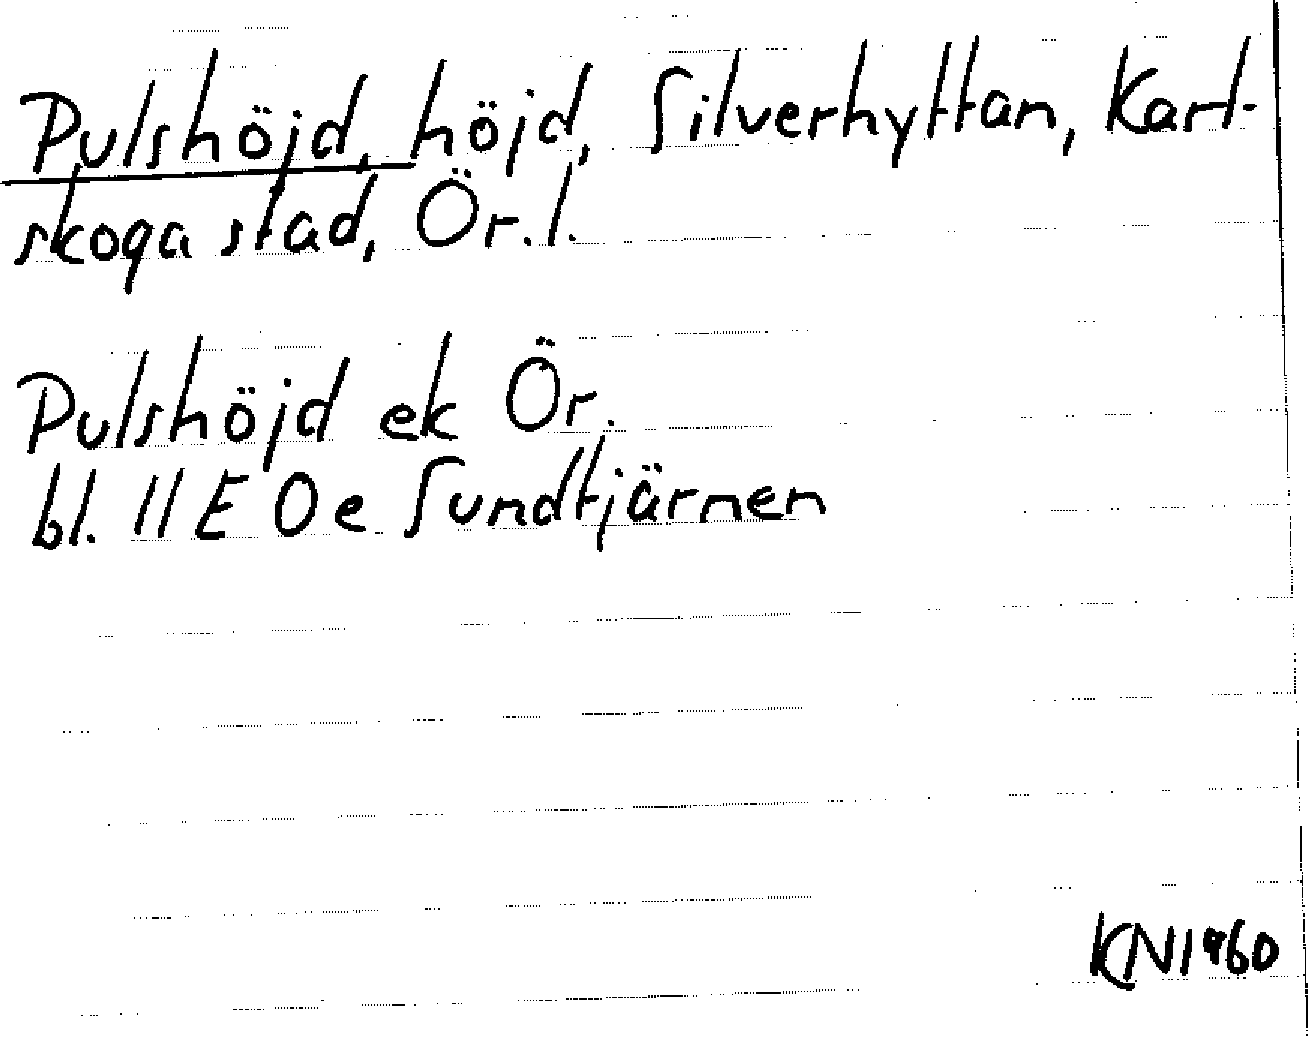 Pulshöjd, höjd, Silverhyttan, Karl-
skoga stad, Ör. l.
Pulshöjd ek Ör.
bl. 11 E 0e Sundtjärnen
KN 1960